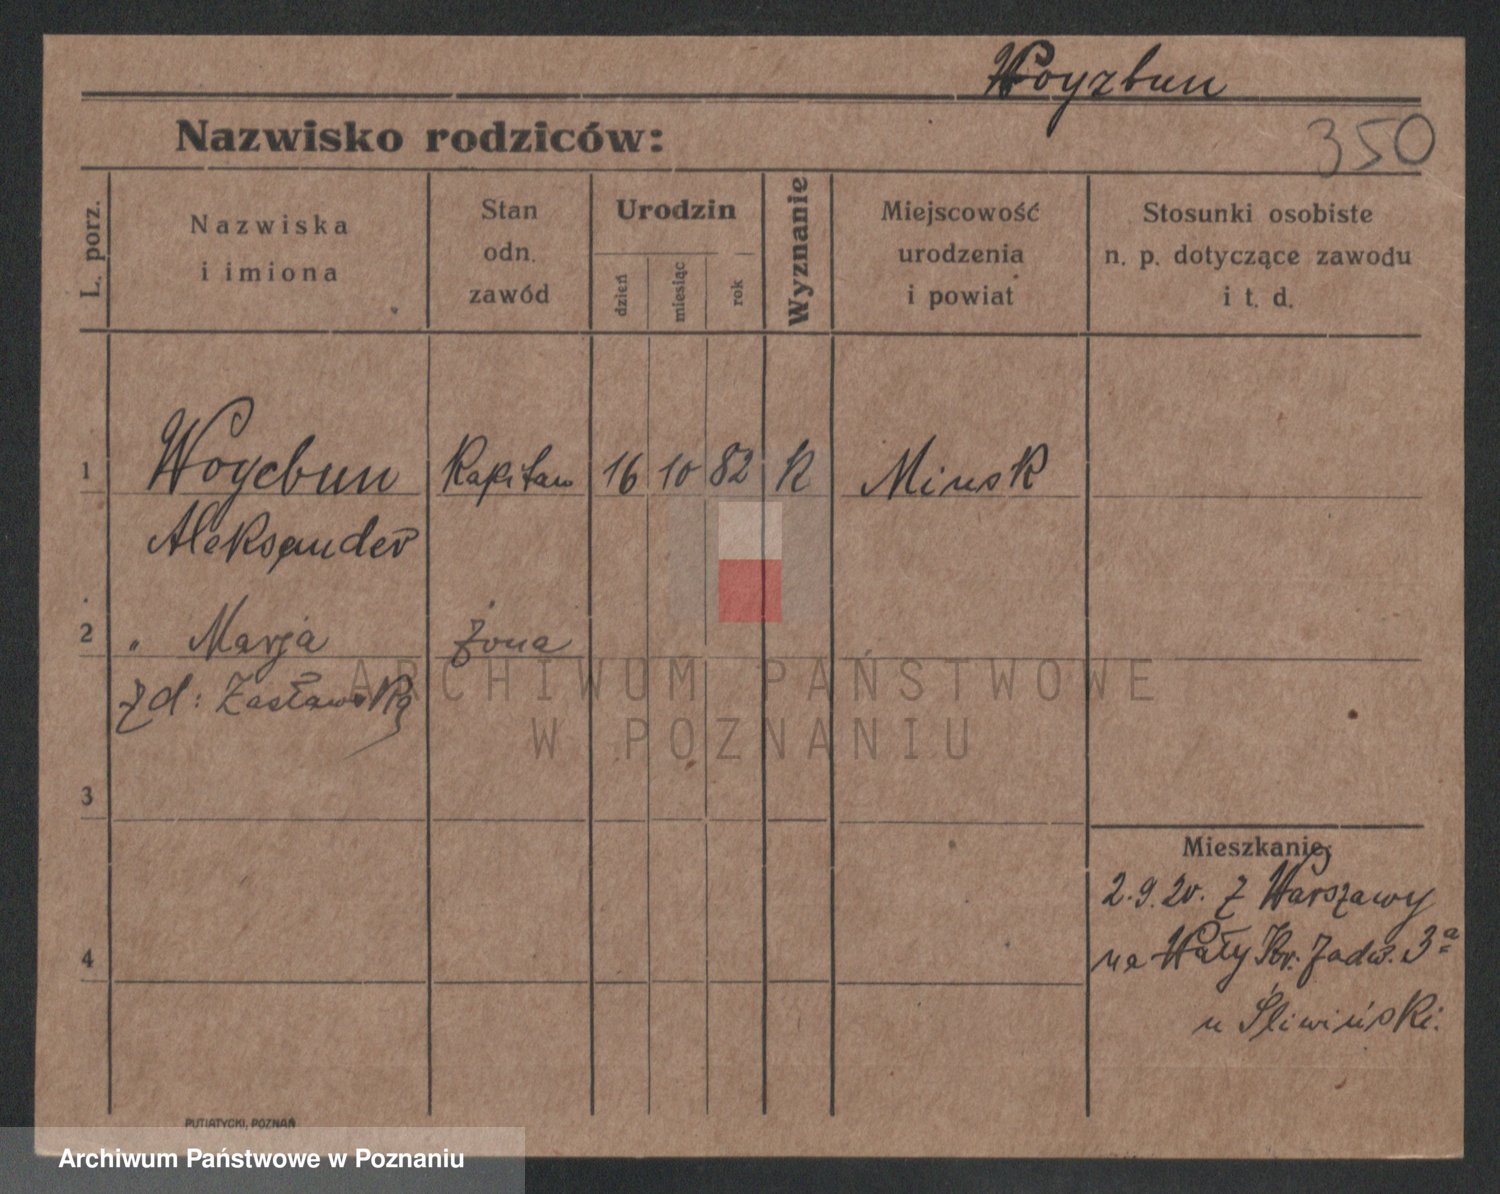 Woyzbun
Nazwisko rodziców:
350
L. porz.
Nazwiska
i imiona
Stan
odn.
zawód
Urodzin
dzień
miesiąc
rok
Wyznanie
Miejscowość
urodzenia
i powiat
Stosunki osobiste
n. p. dotyczące zawodu
i t. d.
1 Woycbun Kapitan 16 10 82 K Minsk
Aleksander
2 " Marja żona
zd: Zasławską
ARCHIWUM PAŃSTWOWE
W POZNANIU
3
Mieszkanie:
2.9.20. z Warszawy
na Wały Kr. Jadw. 3a
4
u Śliwiński.
PUTIATYCKI, POZNAŃ
Archiwum Państwowe w Poznaniu